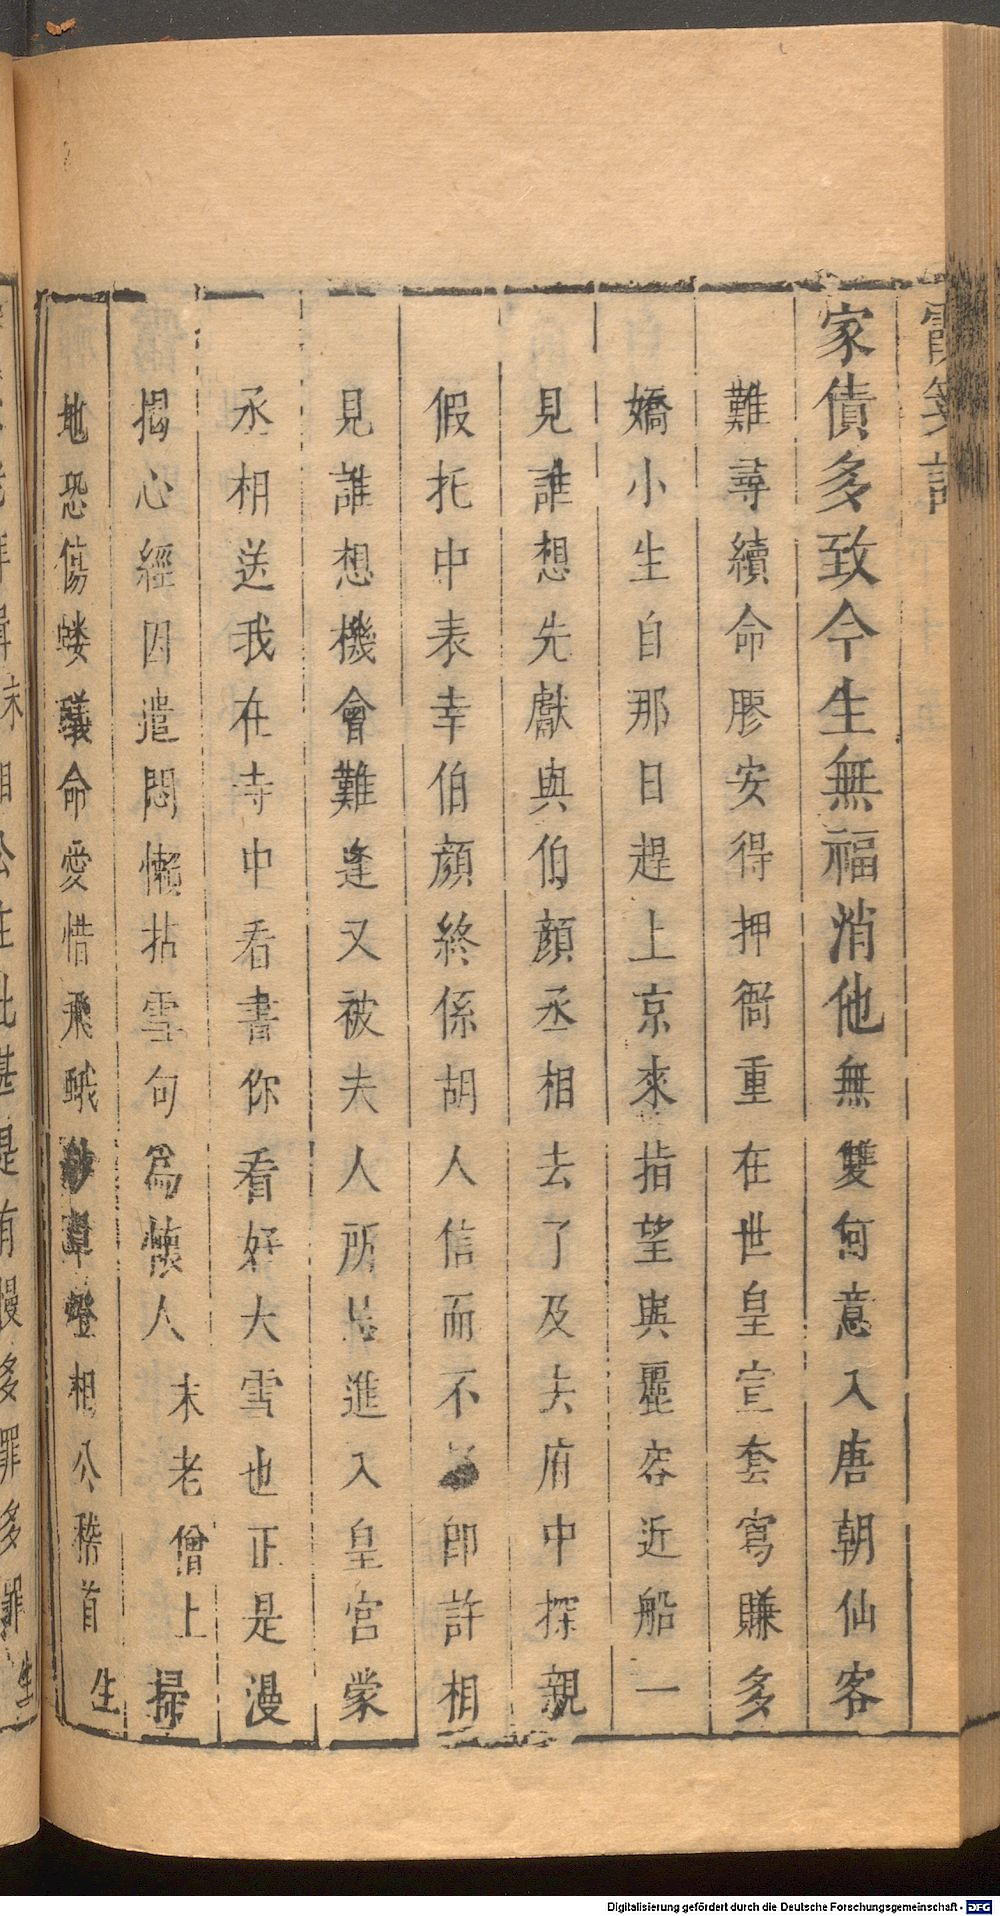 霞箋記
家債多致今生無福消他無雙何意入唐朝仙客
難尋續命膠安得押衙重在世皇宣套寫賺多
嬌小生自那日趕上京來指望與麗容近船一
見誰想先獻與伯顏丞相去了及夫府中探親
假托中表幸伯顏終係胡人信而不 即許相
見誰想機會難逢又被夫人所 進入皇宮蒙
丞相送我在寺中看書你看好大雪也正是漫
揭心經因遣悶懶拈雪句爲懷人末老僧上掃
地恐傷螻蟻命愛惜飛蛾紗罩燈相公稽首生
Digitalisierung gefördert durch die Deutsche Forschungsgemeinschaft - DFG